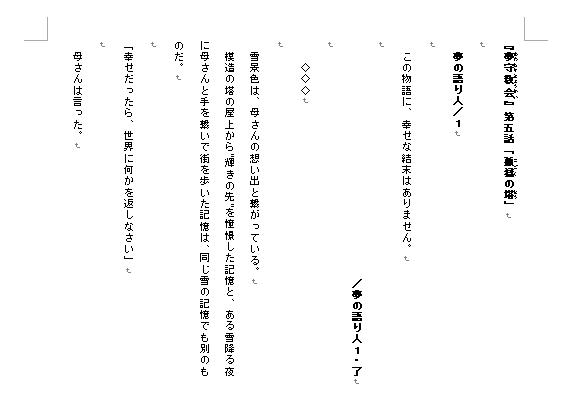 『夢守教会』第五話「蔓延の塔」
夢の語り人／１
この物語に、幸せな結末はありません。
／夢の語り人１・了
◇◇◇
雪景色は、母さんの想い出と繋がっている。
模造の塔の屋上から〝輝きの先〟を憧憬した記憶と、ある雪降る夜
に母さんと手を繋いで街を歩いた記憶は、同じ雪の記憶でも別のも
のだ。
「幸せだったら、世界に何かを返しなさい」
母さんは言った。